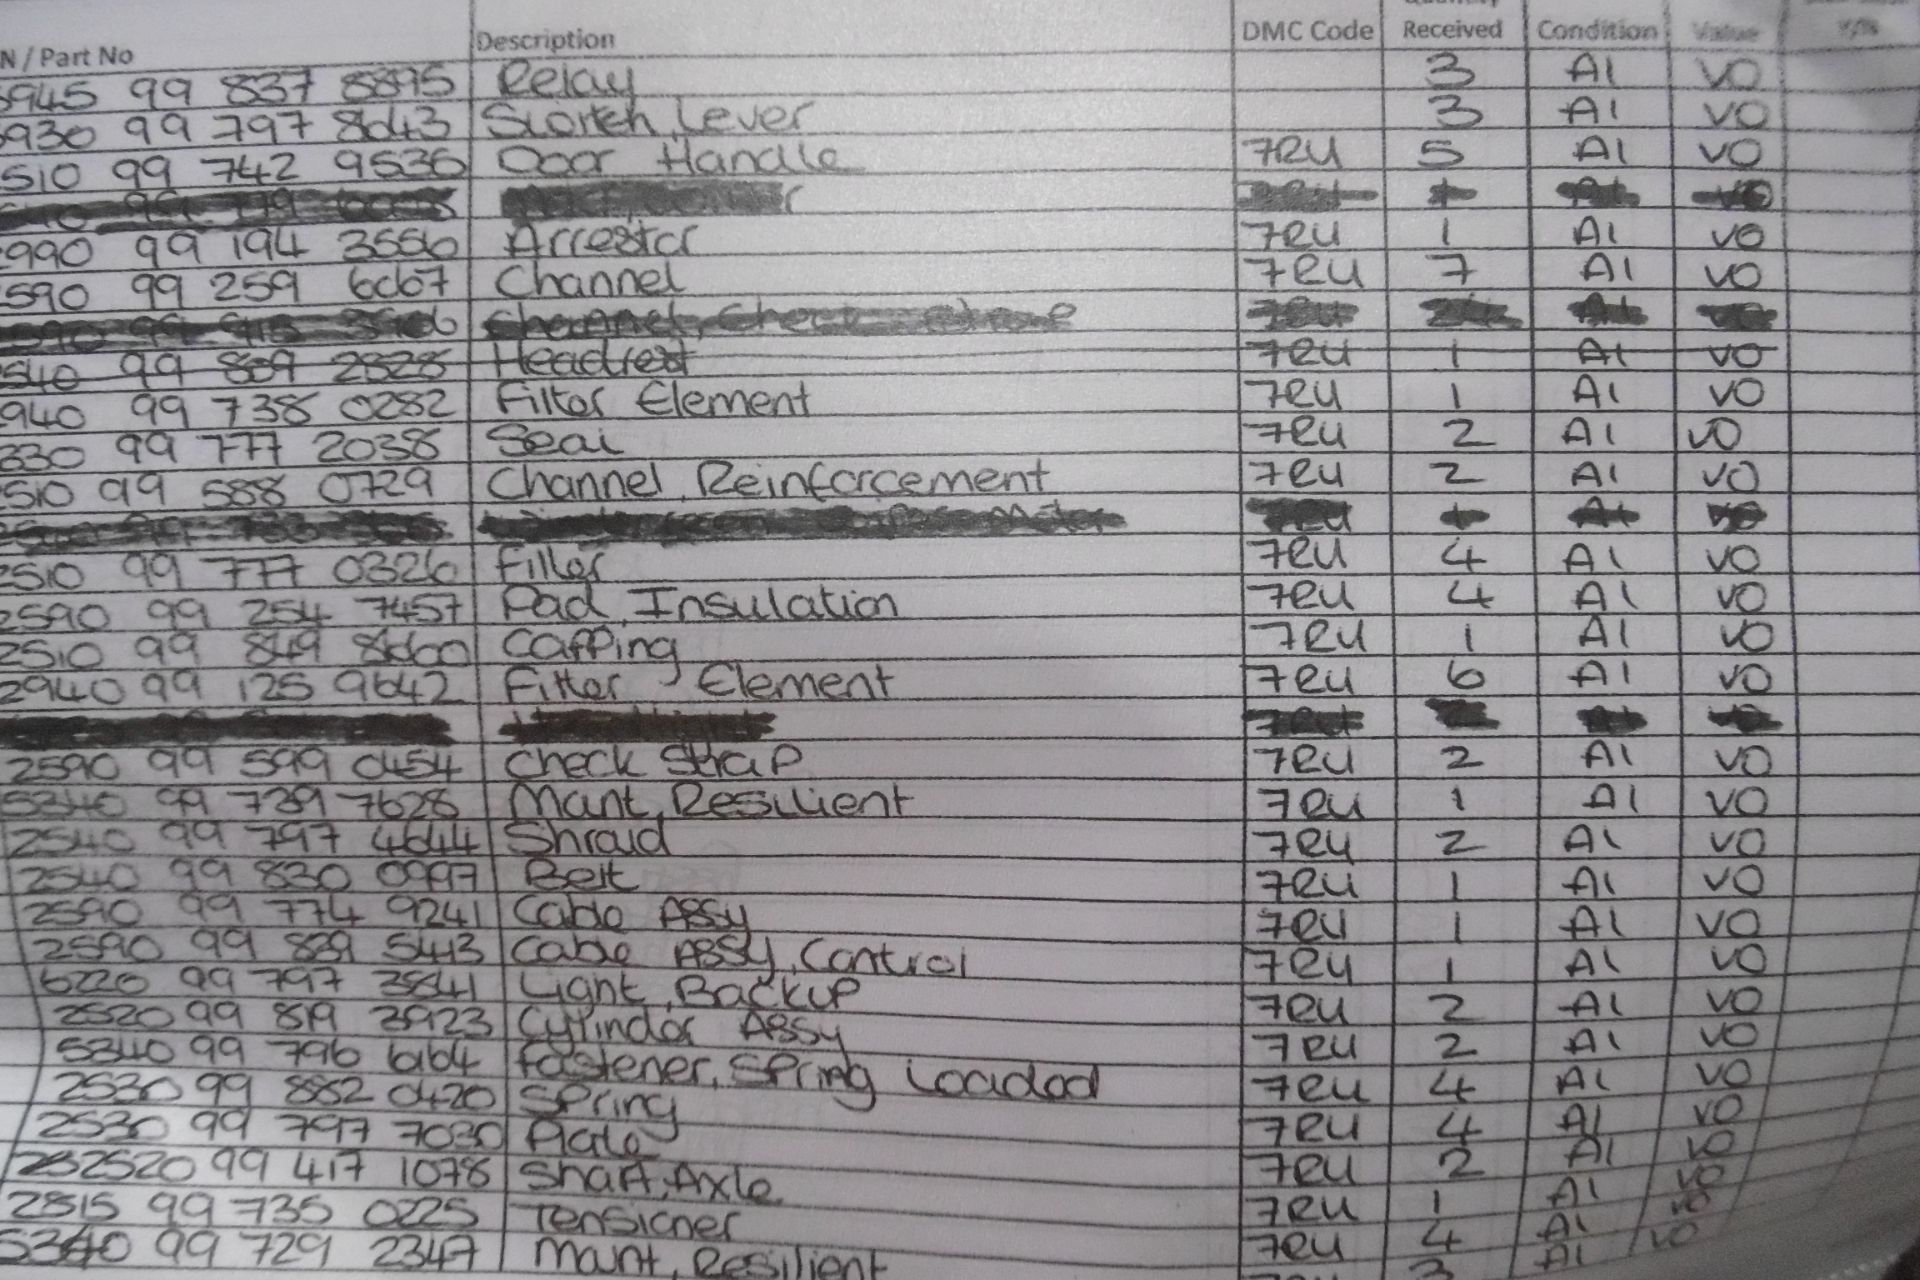 N / Part No Description DMC Code Received Condition Value
5945 99 837 8895 Relay 3 A1 VO
5930 99 797 8043 Switch, Lever 3 A1 VO
510 99 742 9536 Door Handle 7RU 5 A1 VO
990 99 194 3556 Arrestor 7RU 1 A1 VO
590 99 259 6067 Channel 7RU 7 A1 VO
540 99 809 2828 Headrest 7RU 1 A1 VO
940 99 738 0282 Filter Element 7RU 1 A1 VO
330 99 777 2038 Seal 7RU 2 A1 VO
2510 99 588 0729 Channel, Reinforcement 7RU 2 A1 VO
2510 99 777 0326 Filler 7RU 4 A1 VO
2590 99 254 7457 Pad, Insulation 7RU 4 A1 VO
2510 99 849 8600 Capping 7RU 1 A1 VO
2940 99 125 9642 Filter Element 7RU 6 A1 VO
2590 99 599 0454 Check Strap 7RU 2 A1 VO
5340 99 739 7628 Mount, Resilient 7RU 1 A1 VO
2540 99 797 4644 Shroud 7RU 2 A1 VO
2540 99 830 0997 Belt 7RU 1 A1 VO
2590 99 774 9241 Cable Assy 7RU 1 A1 VO
2590 99 839 5443 Cable Assy, Control 7RU 1 A1 VO
6220 99 797 3841 Light, Backup 7RU 2 A1 VO
2520 99 819 3923 Cylinder Assy 7RU 2 A1 VO
5340 99 796 6164 Fastener, Spring Loaded 7RU 4 A1 VO
2530 99 882 0420 Spring 7RU 4 A1 VO
2530 99 797 7030 Plate 7RU 2 A1 VO
2520 99 417 1078 Shaft, Axle 7RU 1 A1 VO
2815 99 735 0225 Tensioner 7RU 4 A1 VO
5340 99 729 2347 Mount, Resilient 7RU 3 A1 VO